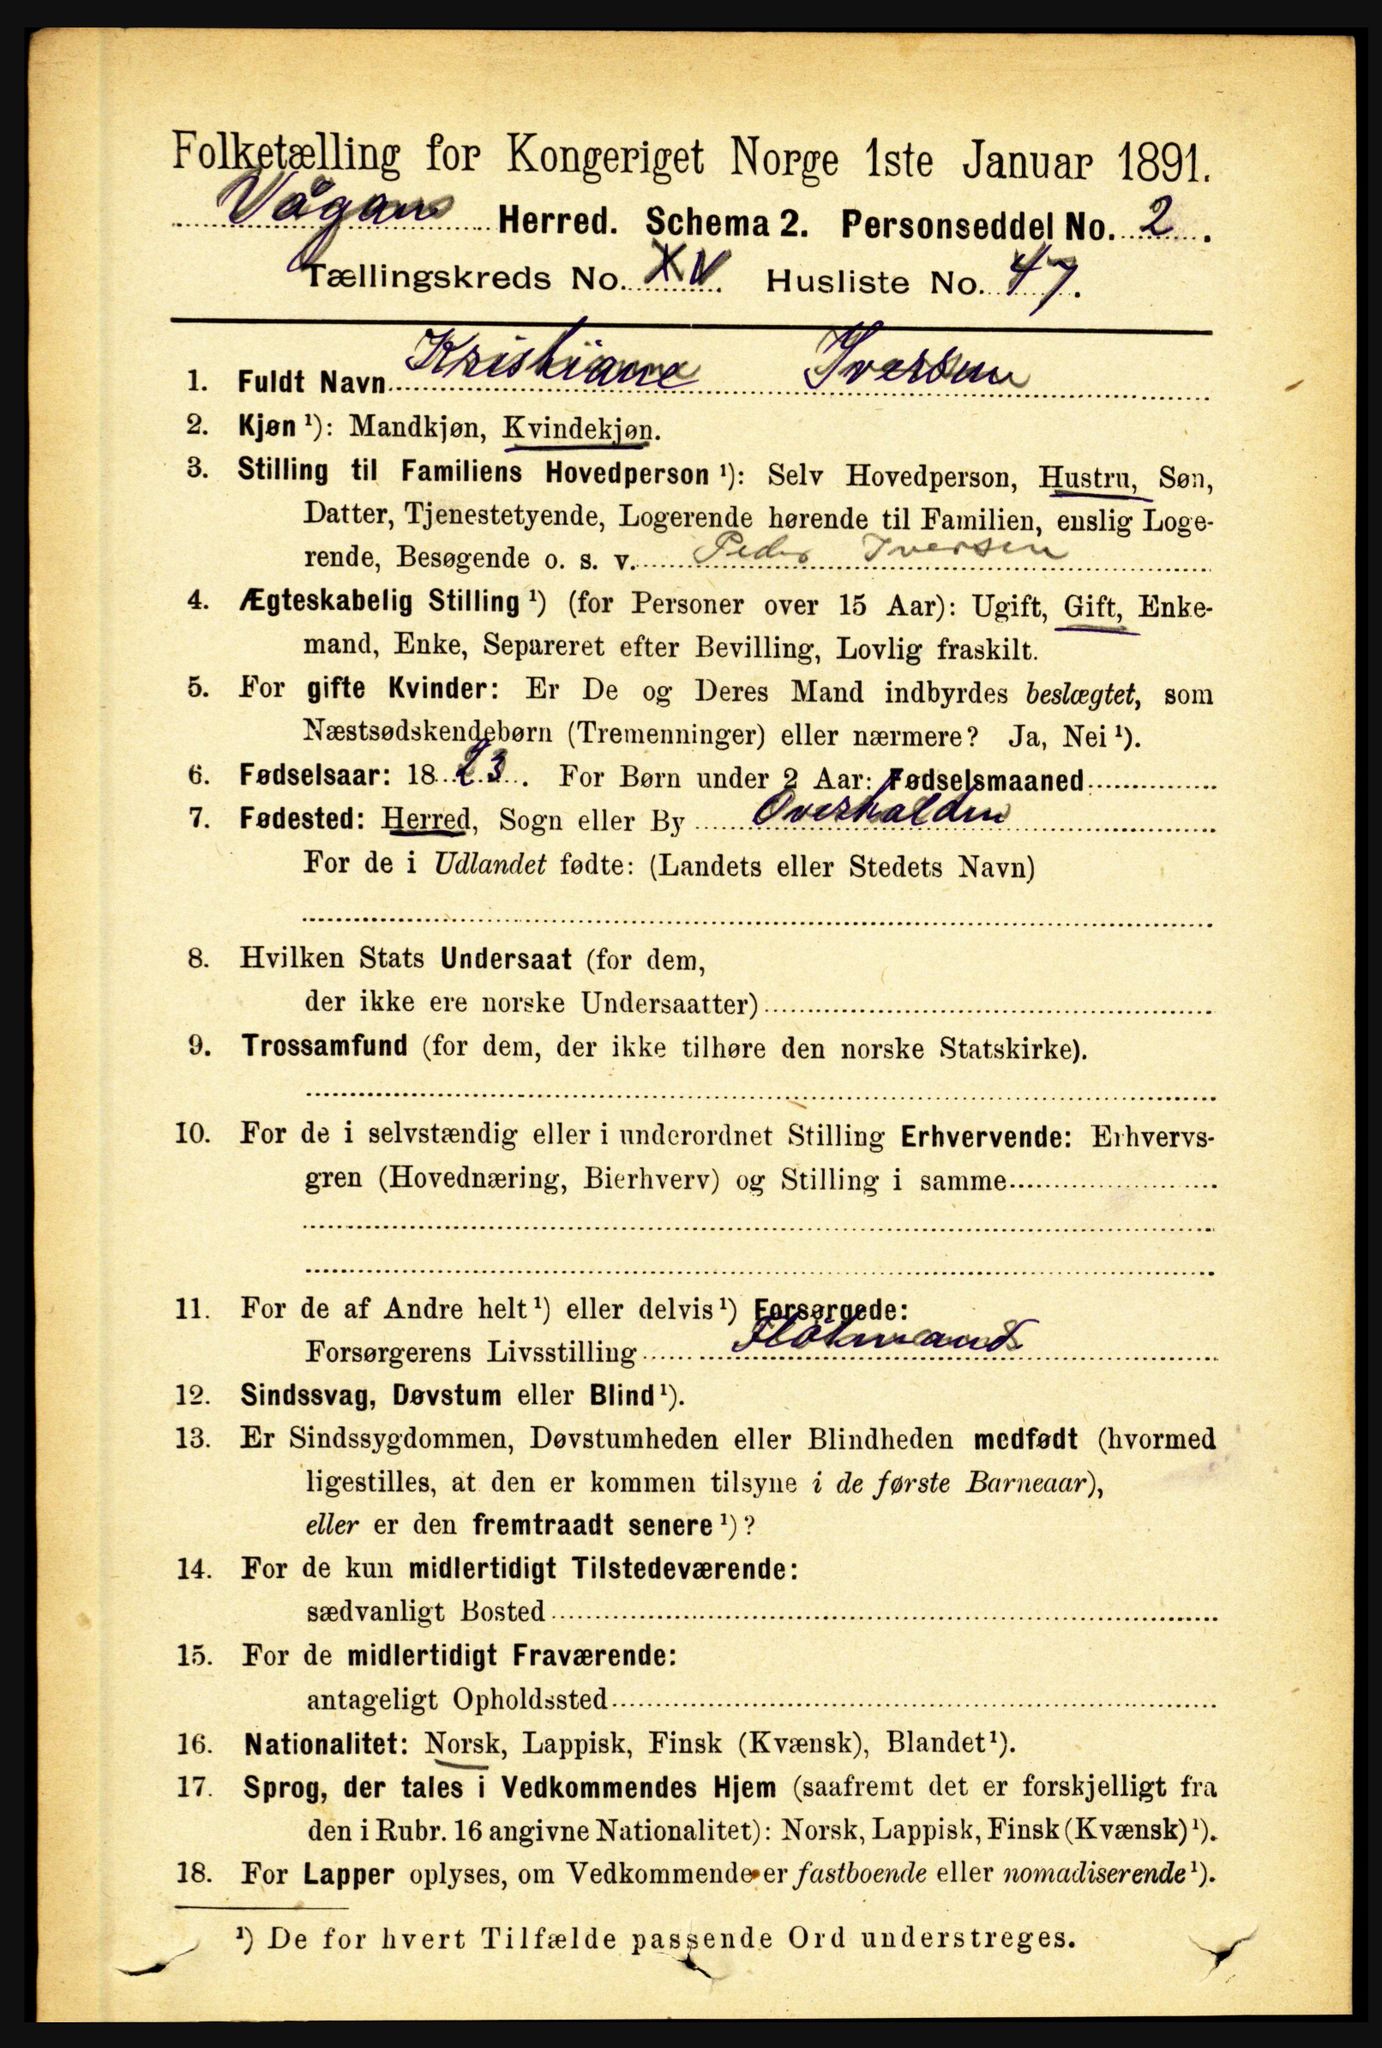 Folketælling for Kongeriget Norge 1ste Januar 1891.
Vågan Herred. Schema 2. Personseddel No. 2.
Tællingskreds No. XV Husliste No. 47.
1. Fuldt Navn Kristiane Iversen
2. Kjøn ¹): Mandkjøn, Kvindekjøn.
3. Stilling til Familiens Hovedperson ¹): Selv Hovedperson, Hustru, Søn,
Datter, Tjenestetyende, Logerende hørende til Familien, enslig Loge-
rende, Besøgende o. s. v. Peder Iversen
4. Ægteskabelig Stilling ¹) (for Personer over 15 Aar): Ugift, Gift, Enke-
mand, Enke, Separeret efter Bevilling, Lovlig fraskilt.
5. For gifte Kvinder: Er De og Deres Mand indbyrdes beslægtet, som
Næstsødskendebørn (Tremenninger) eller nærmere? Ja, Nei ¹).
6. Fødselsaar: 1823. For Børn under 2 Aar: Fødselsmaaned
7. Fødested: Herred, Sogn eller By Overhalden
For de i Udlandet fødte: (Landets eller Stedets Navn)
8. Hvilken Stats Undersaat (for dem,
der ikke ere norske Undersaatter)
9. Trossamfund (for dem, der ikke tilhøre den norske Statskirke).
10. For de i selvstændig eller i underordnet Stilling Erhvervende: Erhvervs-
gren (Hovednæring, Bierhverv) og Stilling i samme
11. For de af Andre helt ¹) eller delvis ¹) Forsørgede:
Forsørgerens Livsstilling Flotmand
12. Sindssvag, Døvstum eller Blind ¹).
13. Er Sindssygdommen, Døvstumheden eller Blindheden medfødt (hvormed
ligestilles, at den er kommen tilsyne i de første Barneaar),
eller er den fremtraadt senere ¹)?
14. For de kun midlertidigt Tilstedeværende:
sædvanligt Bosted
15. For de midlertidigt Fraværende:
antageligt Opholdssted
16. Nationalitet: Norsk, Lappisk, Finsk (Kvænsk), Blandet ¹).
17. Sprog, der tales i Vedkommendes Hjem (saafremt det er forskjelligt fra
den i Rubr. 16 angivne Nationalitet): Norsk, Lappisk, Finsk (Kvænsk) ¹).
18. For Lapper oplyses, om Vedkommende er fastboende eller nomadiserende ¹).
¹) De for hvert Tilfælde passende Ord understreges.